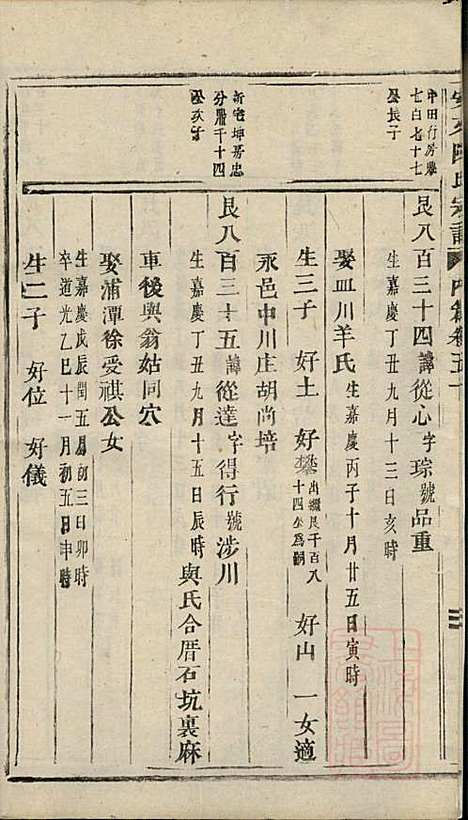 陳氏宗譜
中田行房
七百七十七
公長子
艮八百三十四諱從心字琮號品重
生嘉慶丁丑九月十三日亥時
娶皿川羊氏生嘉慶丙子十月廿五日寅時
生三子 好土 好鏊出繼艮千百八十四坐為嗣 好山 一女適
永邑中川庄胡尚培
新宅坤房忠
分爵千十四
公次子
艮八百三十五諱從達字得行號涉川
生嘉慶丁丑九月十五日辰時與氏合厝石坑裏麻
車後與翁姑同穴
娶浦潭徐受祺公女
生嘉慶戊辰閏五月初三日卯時
卒道光乙巳十一月初五日申時
生二子 好位 好儀